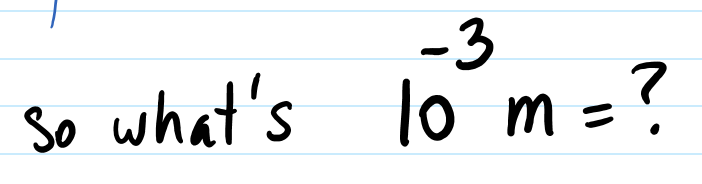 so what's 10⁻³ m = ?